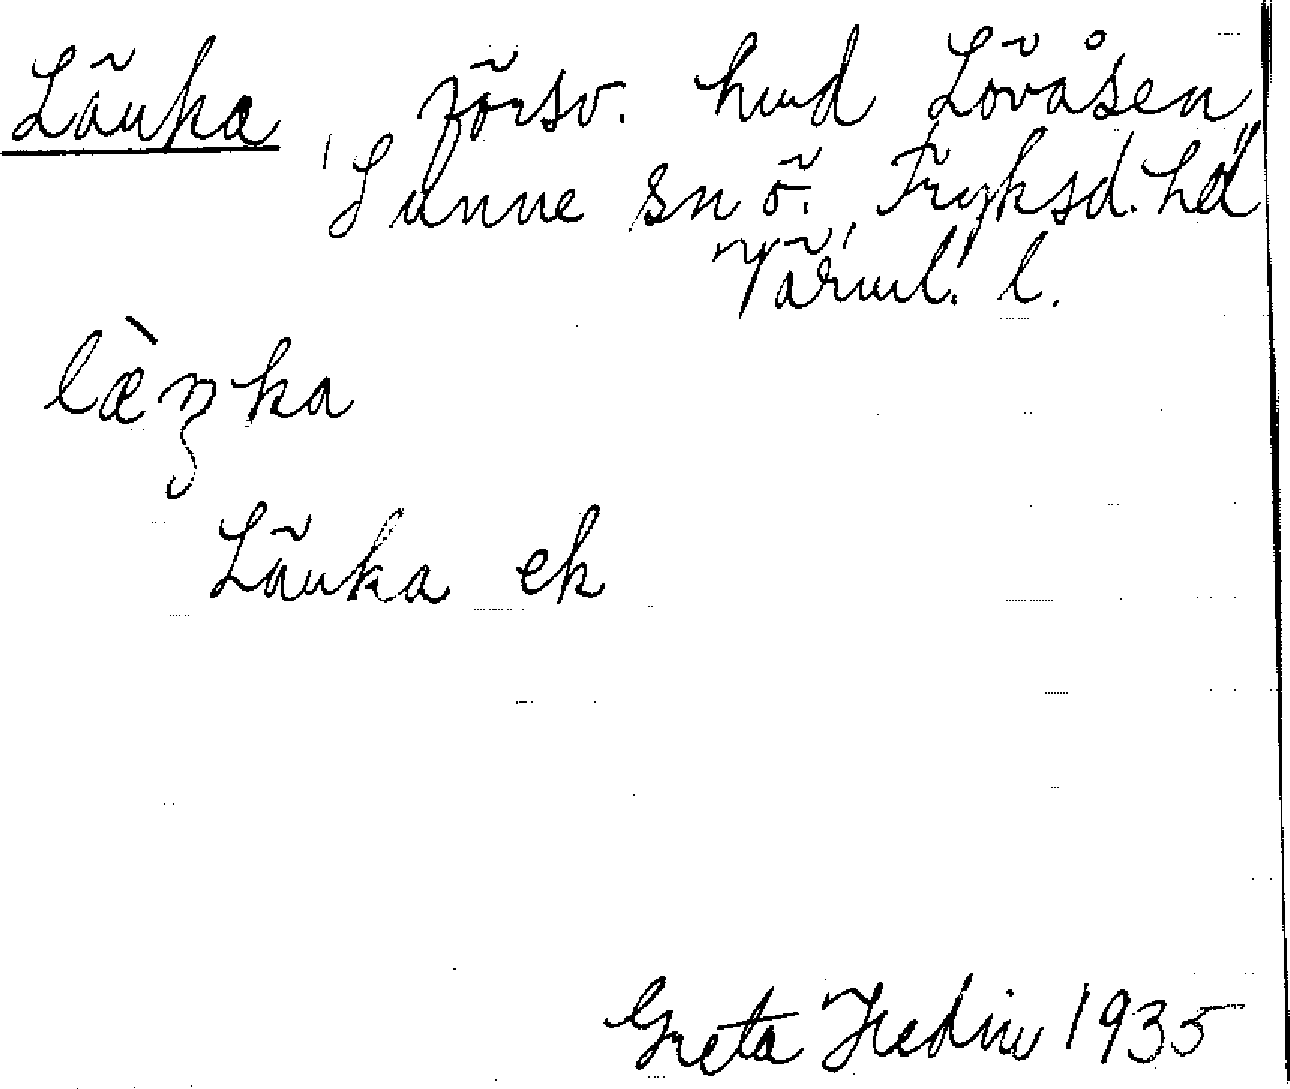 Länka, försv. hmd Lövåsen,
Sunne sn ö., Fryksd. hd
Värml. l.
læ̀ŋka
Länka ek
Greta Hedin 1935